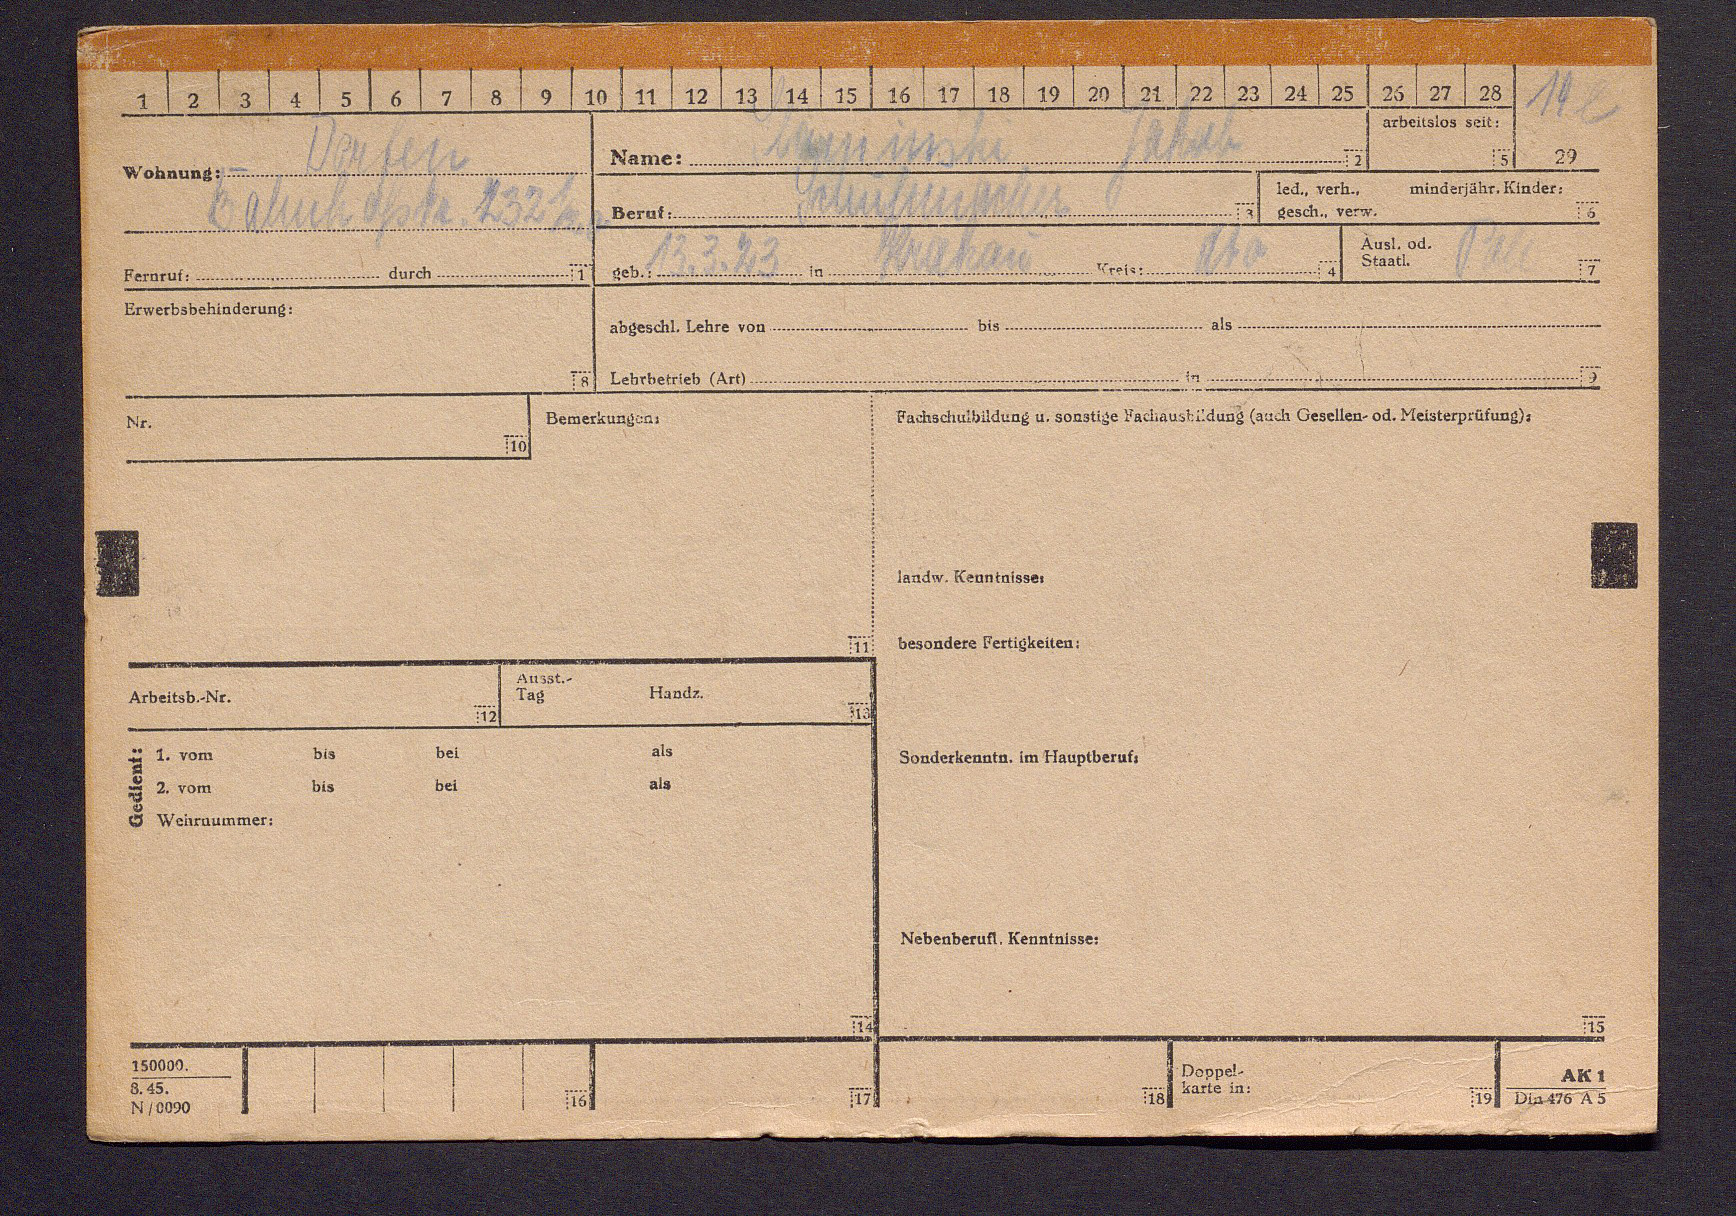 1 2 3 4 5 6 7 8 9 10 11 12 13 14 15 16 17 18 19 20 21 22 23 24 25 26 27 28
Wohnung: Dorfen
Bahnhofstr. 232
Fernruf: durch 1
Name: Jakob 2
arbeitslos seit: 5
29
Beruf: Schuhmacher 3
led., verh., minderjähr. Kinder:
gesch., verw. 6
geb.: 13.3.23 in Krakau Kreis: dto 4
Ausl. od.
Staatl. 7
Erwerbsbehinderung:
8
abgeschl. Lehre von bis als
Lehrbetrieb (Art) in 9
Nr.
10
Bemerkungen:
11
Fachschulbildung u. sonstige Fachausbildung (auch Gesellen- od. Meisterprüfung):
landw. Kenntnisse:
besondere Fertigkeiten:
Sonderkenntn. im Hauptberuf:
Nebenberufl. Kenntnisse:
15
Arbeitsb.-Nr.
12
Ausst.-
Tag Handz.
13
Gedient:
1. vom bis bei als
2. vom bis bei als
Wehrnummer:
14
150000.
8. 45.
N/0090
16
17
18
Doppel-
karte in:
19
AK 1
Din 476 A 5